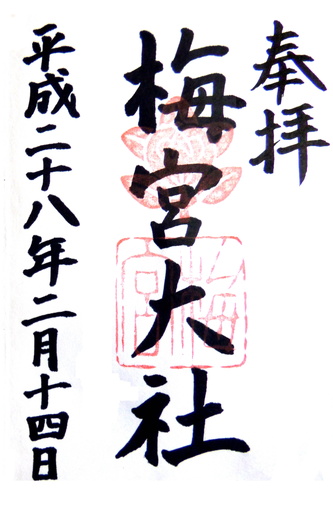 奉拝
梅宮大社
梅宮
平成二十八年二月十四日